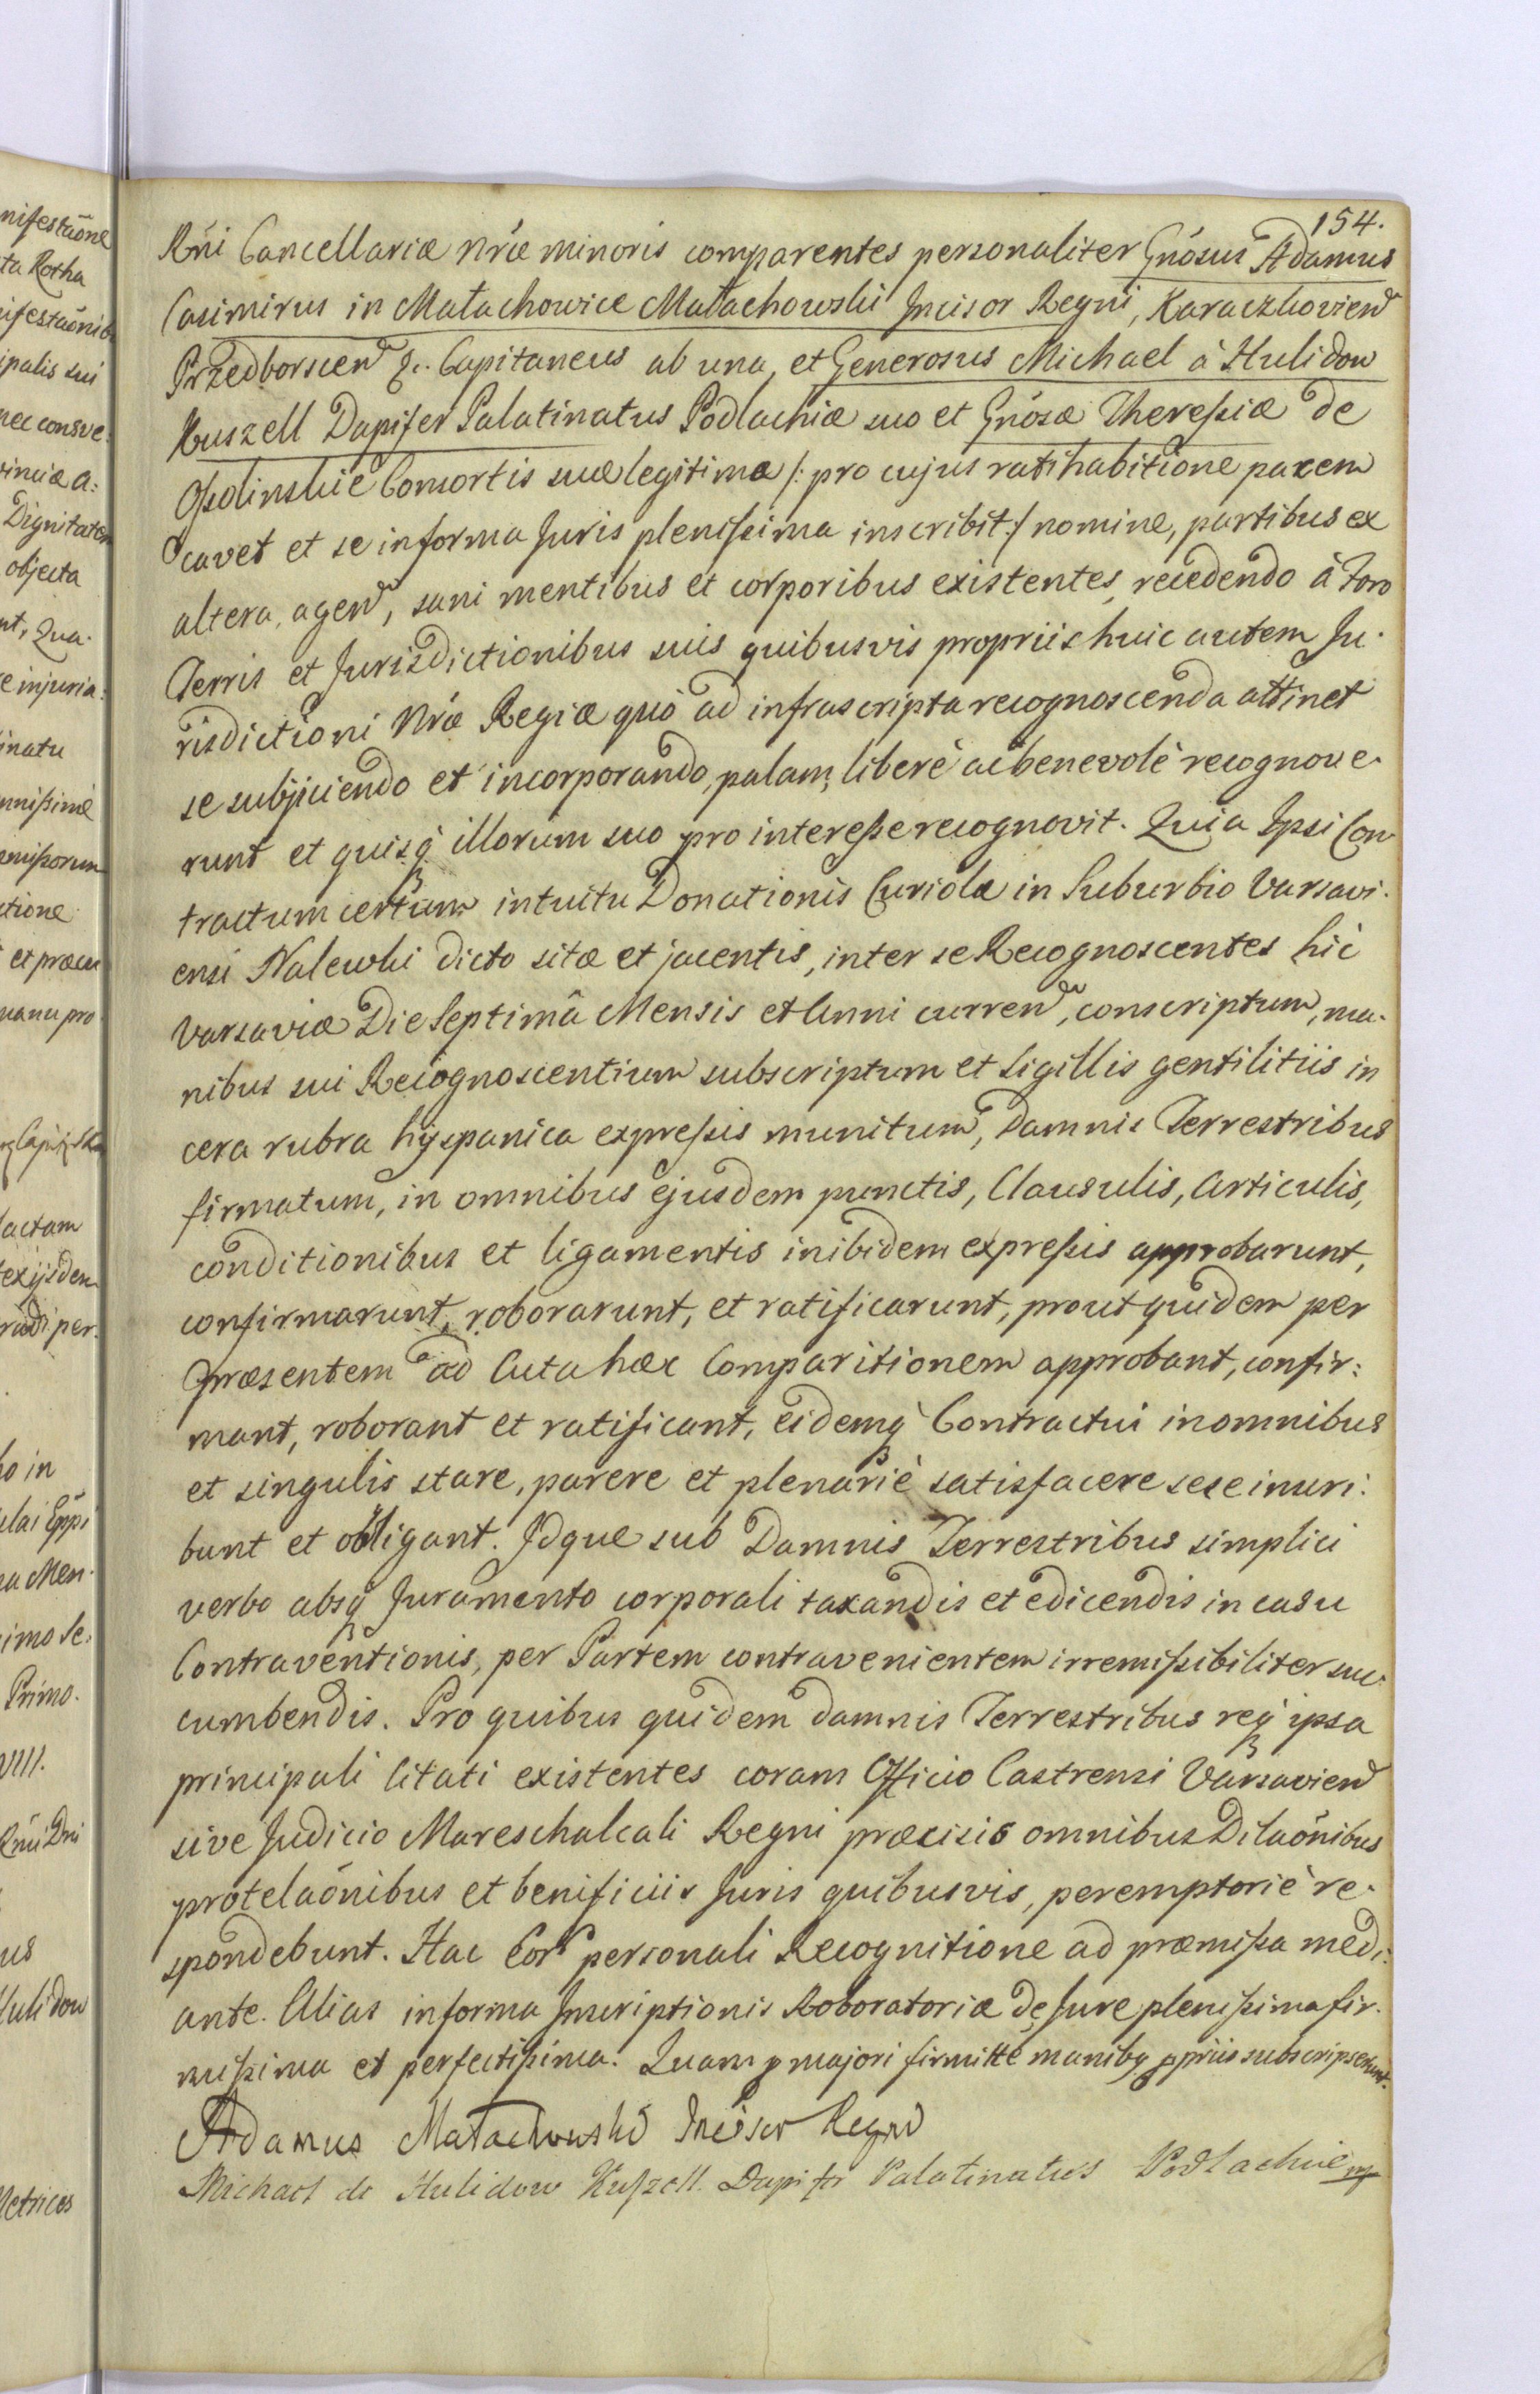 154.
Rñi Cancellariæ Nræ minoris comparentes personaliter Gnósus Adamus
Casimirus in Małachowice Małachowski Incisor Regni, Karaczkovien
Przedborscen &c. Capitaneus ab una, et Generosus Michael à Hulidow
Kuszell Dapifer Palatinatus Podlachiæ suo et Gnósæ Theressiæ de
Ossolinskie Consortis suæ legitimæ /: pro cujus ratihabitione pacem
cavet et se in forma Juris plenissima inscribit :/ nomine, partibus ex
altera, agen, sani mentibus et corporibus existentes, recedendo à Foro
Terris et Jurisdictionibus suis quibusvis propriis huic autem Ju-
risdictioni Nræ Regiæ quò ad infrascripta recognoscenda attinet
se subjiciendo et incorporando, palam, liberè ac benevolè recognove-
runt et quisq illorum suo pro interesse recognovit. Quia Ipsi Con-
tractum certum intuitu Donationis Curiolæ in Suburbio Varsavi-
ensi Nalewki dicto sitæ et jacentis, inter se Recognoscentes hic
Varsaviæ Die Septimâ Mensis et Anni curren, conscriptum, ma-
nibus sui Recognoscentium subscriptum et Sigillis gentilitiis in
cera rubra hyspanica expressis munitum, Damnis Terrestribus
firmatum, in omnibus ejusdem punctis, Clausulis, Articulis,
conditionibus et ligamentis inibidem expressis approbarunt,
confirmarunt, roborarunt, et ratificarunt, prout quidem per
præsentem ad Acta hæc Comparitionem approbant, confir:
mant, roborant et ratificant, eidemq Contractui in omnibus
et singulis stare, parere et plenariè satisfacere sese inscri:
bunt et obligant. Idque sub Damnis Terrestribus simplici
verbo absq Juramento corporali taxandis et edicendis in casu
Contraventionis, per Partem contravenientem irremissibiliter suc-
cumbendis. Pro quibus quidem damnis Terrestribus req ipsa
principali Citati existentes coram Officio Castrensi Varsavien
sive Judicio Mareschalcali Regni præcisis omnibus Dilaõnibus
protelaõnibus et benificiis Juris quibusvis, peremptoriè re-
spondebunt. Hac Eor personali Recognitione ad præmissa medi-
ante. Alias in forma Inscriptionis Roboratoriæ de Jure plenissima fir-
missima et perfectissima. Quam p majori firmitte manibq ppriis subscripserunt.
Adamus Małachowski Incisor Regni
Michael de Hulidow Kuszell. Dapifer Palatinatus Podlachiæ mp